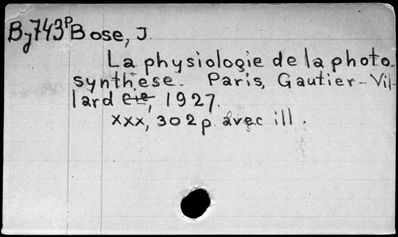 By743P Bose, J.
La physiologie de la photo-
synthèse. Paris, Gautier-Vil-
lard cie, 1927.
xxx, 302 p. avec ill.